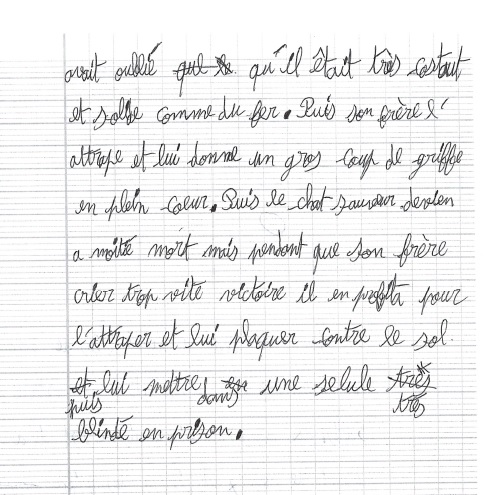 avait oublié que le qu'il était très costaut
et solide comme du fer. Puis son frère l'
attrape et lui donne un gros coup de griffe
en plein coeur. Puis le chat sauveur devien
a moitié mort mais pendant que son frère
crier trop vite victoire il en profita pour
l'attraper et lui plaquer contre le sol.
et lui mettre en une selule très
puis dans très
blindé en prison.